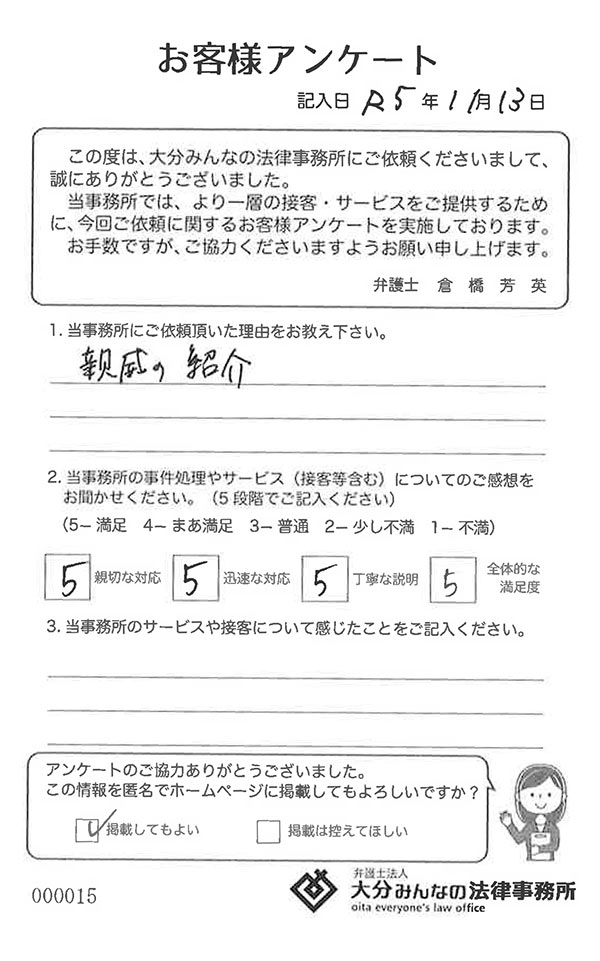 お客様アンケート
記入日 R5年11月13日
この度は、大分みんなの法律事務所にご依頼くださいまして、
誠にありがとうございました。
当事務所では、より一層の接客・サービスをご提供するため
に、今回ご依頼に関するお客様アンケートを実施しております。
お手数ですが、ご協力くださいますようお願い申し上げます。
弁護士 倉橋芳英
1. 当事務所にご依頼頂いた理由をお教え下さい。
親戚の紹介
2. 当事務所の事件処理やサービス（接客等含む）についてのご感想を
お聞かせください。（5段階でご記入ください）
（5−満足 4−まあ満足 3−普通 2−少し不満 1−不満）
5 親切な対応 5 迅速な対応 5 丁寧な説明 5 全体的な
満足度
3. 当事務所のサービスや接客について感じたことをご記入ください。
アンケートのご協力ありがとうございました。
この情報を匿名でホームページに掲載してもよろしいですか？
掲載してもよい 掲載は控えてほしい
000015
弁護士法人
大分みんなの法律事務所
oita everyone's law office